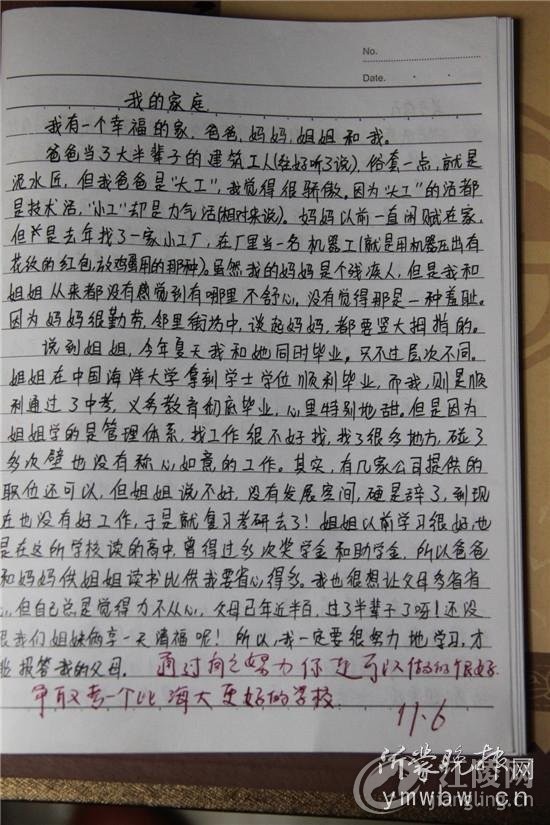 No.
Date.
我的家庭
我有一个幸福的家，爸爸，妈妈，姐姐和我。
爸爸当了大半辈子的建筑工人(在好听了说)，俗套一点，就是
泥水匠，但我爸爸是“大工”，我觉得很骄傲。因为“大工”的活都
是技术活，“小工”却是力气活(相对来说)。妈妈以前一直闲赋在家，
但是去年找了一家小工厂，在厂里当一名机器工(就是用机器压出有
花纹的红包，放鸡蛋用的那种)。虽然我的妈妈是个残疾人，但是我和
姐姐从来都没有感觉到有哪里不舒心，没有觉得那是一种羞耻。
因为妈妈很勤劳，邻里街坊中，谈起妈妈，都要竖大拇指的。
说到姐姐，今年夏天我和她同时毕业。只不过层次不同。
姐姐在中国海洋大学拿到学士学位顺利毕业，而我，则是顺
利通过了中考，义务教育彻底毕业，心里特别地甜。但是因为
姐姐学的是管理体系，找工作很不好找，找了很多地方，碰了
多次壁也没有称心如意的工作。其实，有几家公司提供的
职位还可以，但姐姐说不好，没有发展空间，硬是辞了，到现
在也没有好工作，于是就复习考研去了！姐姐以前学习很好，也
是在这所学校读的高中，曾得过多次奖学金和助学金，所以爸爸
和妈妈供姐姐读书比供我要省心得多。我也很想让父母多省省
心，但自己总是觉得力不从心，父母已年近半百，过了半辈子了呀！还没
跟我们姐妹俩享一天清福呢！所以，我一定要很努力地学习，才
能报答我的父母。通过自己努力你是可以做的很好.
争取考一个比海大更好的学校.
11.6
沂蒙晚报网
ymwbw.cn
江陵网
jiangling.cn